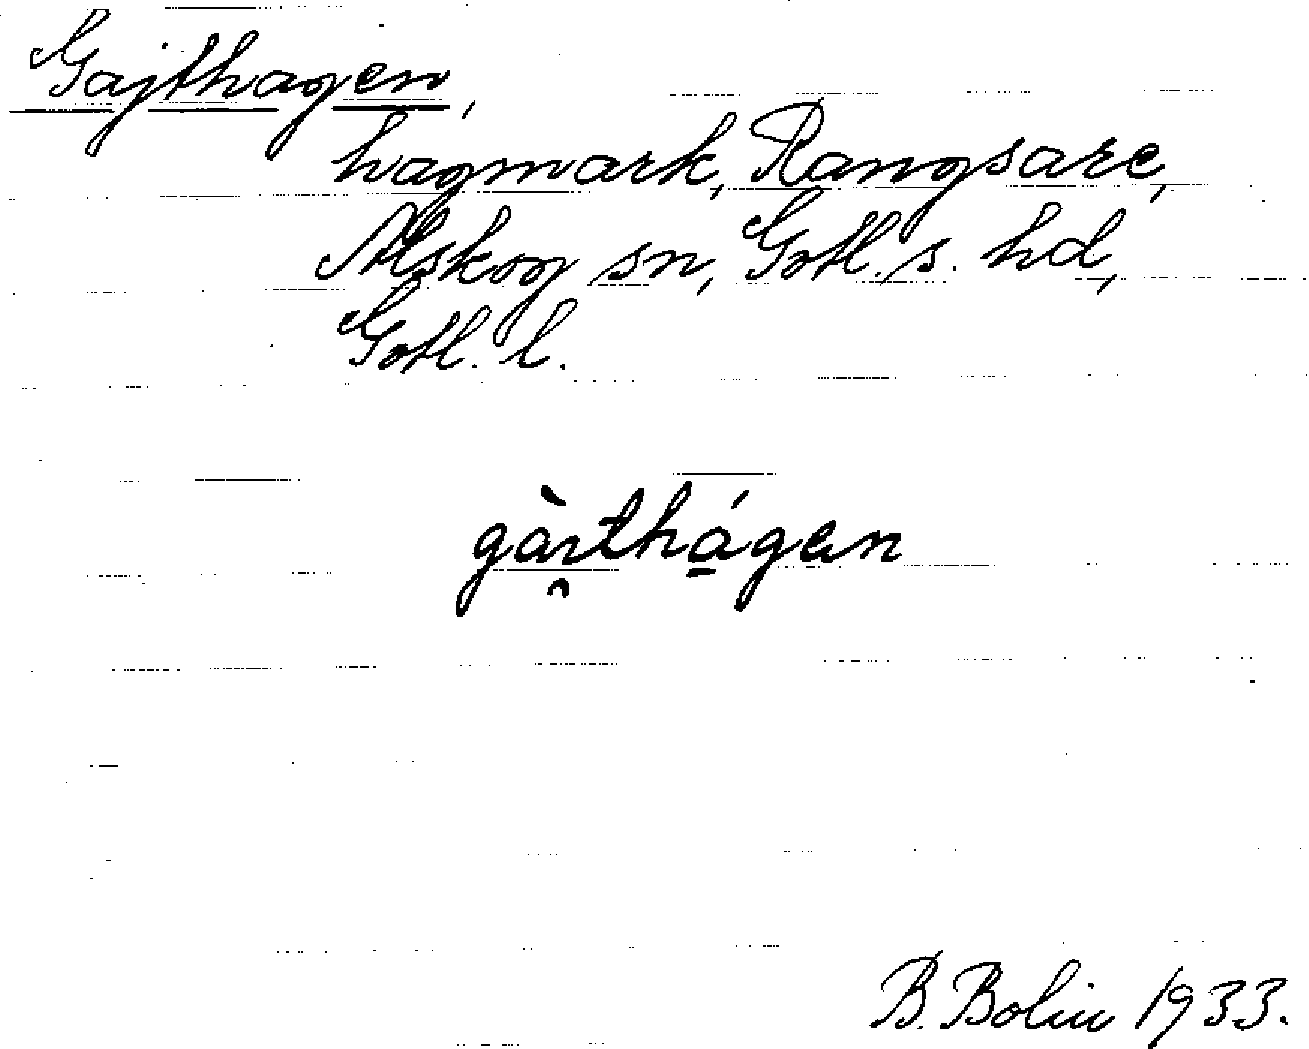 Gajthagen,
hagmark, Rangsare,
Alskog sn, Gotl. s. hd,
Gotl. l.
gàı̯thá̱gen
B. Bolin 1933.